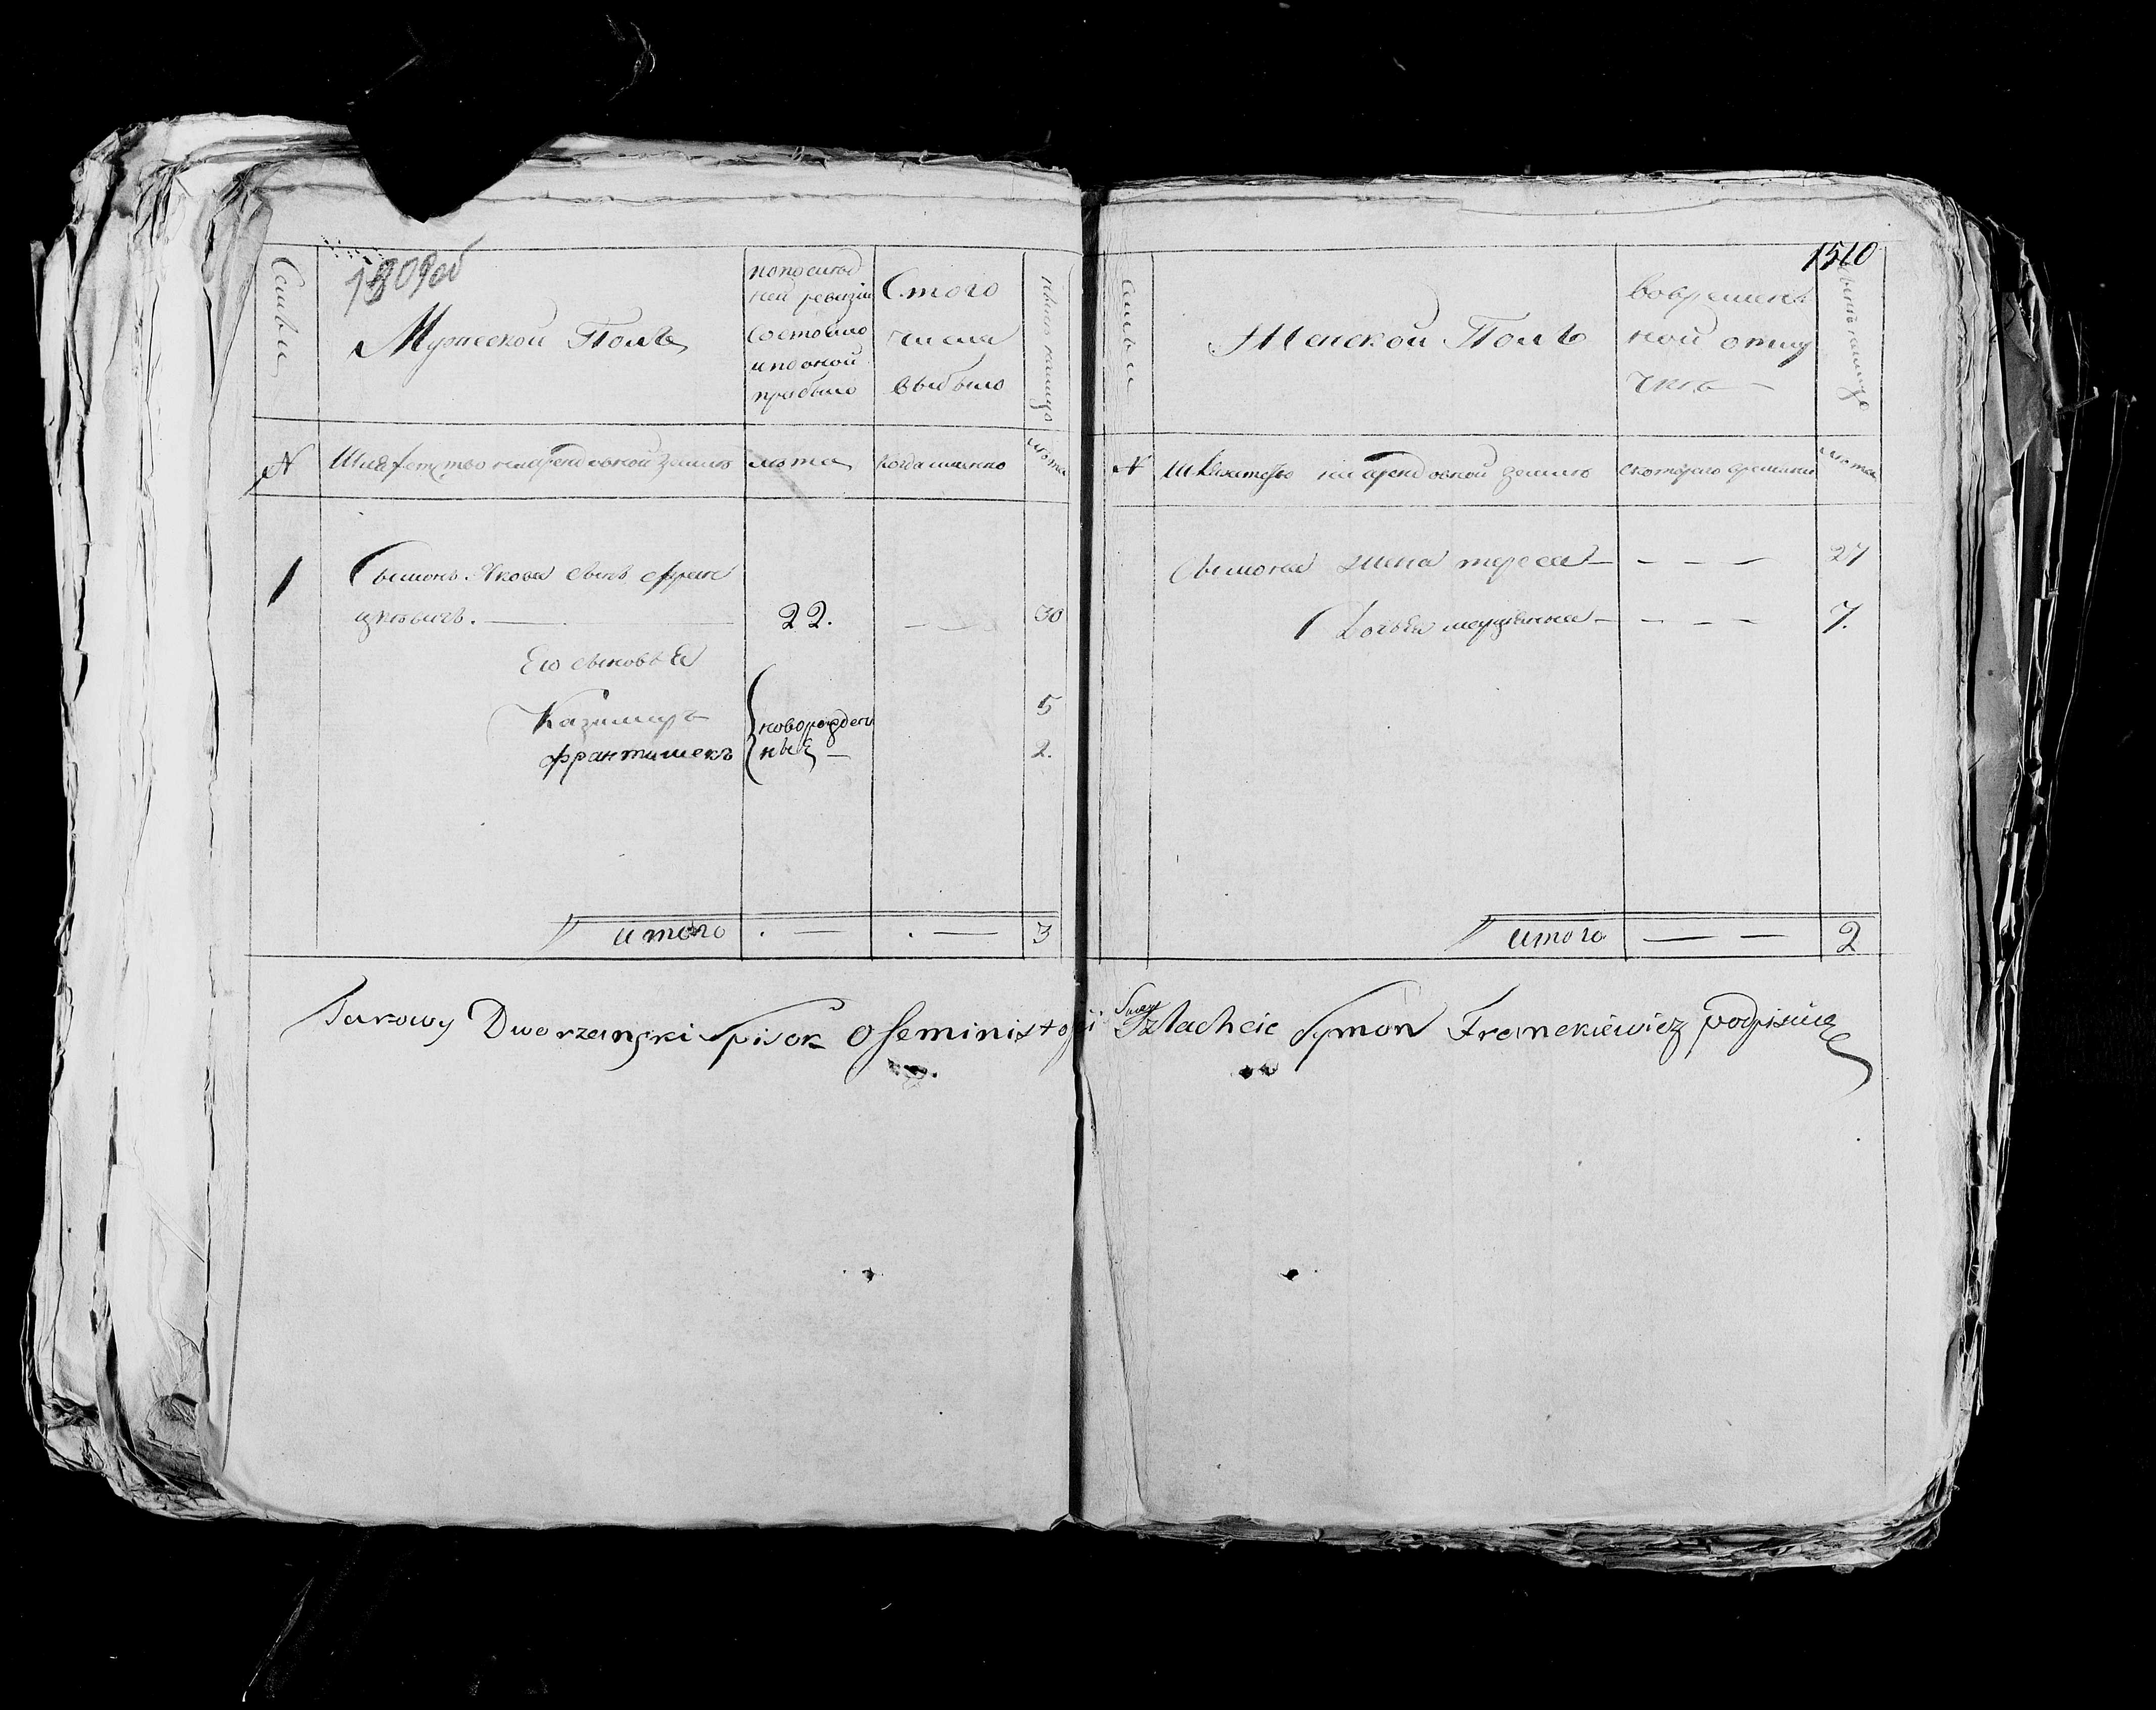 1509 об
Семьи
Мужеской Полъ
попослѣд
ней ревизіи
состояло
ипооной
прибыло
Стого
числа
выбыло
Нынѣ налицо
№
Шляхетство на арендовной землѣ
лѣта
когда имянно
лѣта
1
Сымонъ Якова сынъ Фран
цкѣвичъ.
22.
30
Его сыновья
Казимиръ
5
Франтишекъ
новорожден
ныя
2.
итого
3
1510
Семьи
Женской Полъ
вовремян
ной отлу
чкѣ
нынѣ налицо
№
Шляхетство на арендовной землѣ
скотораго времяни
лѣта
Сымона жена тереса
27
1 Дочь марцыяна
7.
итого
2
Takowy Dworzanski Spisok Szlachcic Symon Franckiewicz podpisuie